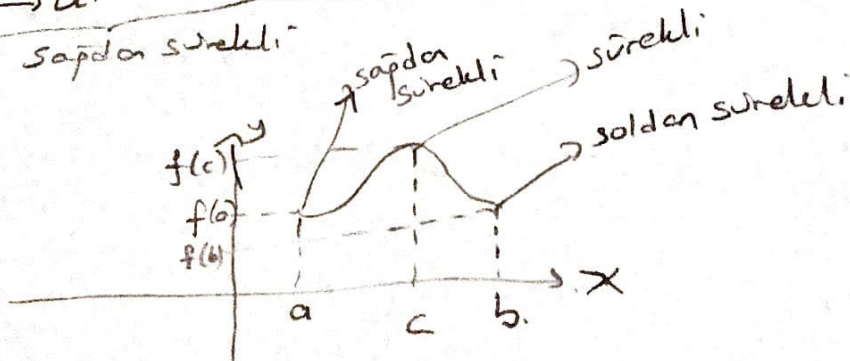 sağdan sürekli
sağdan
sürekli
sürekli
soldan sürekli
y
f(c)
f(a)
f(b)
a
c
b.
x